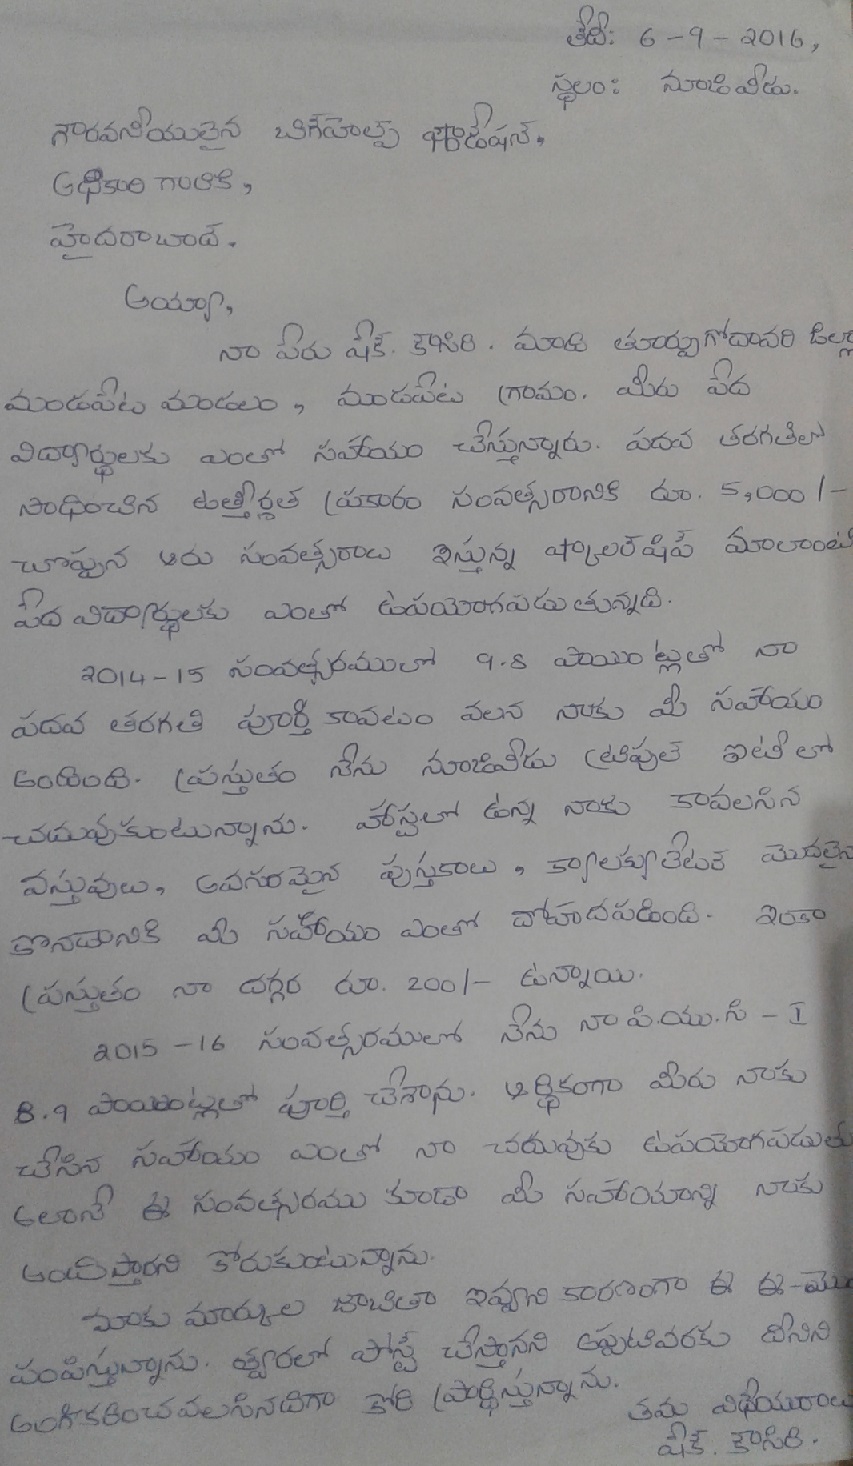 తేదీ: 6-9-2016,
స్థలం: నూజివీడు.
గౌరవనీయులైన బిగ్‌హెల్ప్ ఫౌండేషన్,
అధికారి గారికి,
హైదరాబాద్.
అయ్యా,
నా పేరు షేక్. కౌసిరి. మాది తూర్పుగోదావరి జిల్లా
మండపేట మండలం, మండపేట గ్రామం. మీరు పేద
విద్యార్థులకు ఎంతో సహాయం చేస్తున్నారు. పదవ తరగతిలో
సాధించిన ఉత్తీర్ణత ప్రకారం సంవత్సరానికి రూ. 5,000/-
చొప్పున ఆరు సంవత్సరాలు ఇస్తున్న స్కాలర్‌షిప్ మాలాంటి
పేద విద్యార్థులకు ఎంతో ఉపయోగపడుతున్నది.
2014-15 సంవత్సరములో 9.8 పాయింట్లతో నా
పదవ తరగతి పూర్తి కావటం వలన నాకు మీ సహాయం
అందింది. ప్రస్తుతం నేను నూజివీడు ట్రిపుల్ ఐటీలో
చదువుకుంటున్నాను. హాస్టల్లో ఉన్న నాకు కావలసిన
వస్తువులు, అవసరమైన పుస్తకాలు, క్యాలక్యులేటర్ మొదలైన
కొనడానికి మీ సహాయం ఎంతో దోహదపడింది. ఇంకా
ప్రస్తుతం నా దగ్గర రూ. 200/- ఉన్నాయి.
2015-16 సంవత్సరములో నేను నా పి.యు.సి - I
8.9 పాయింట్లతో పూర్తి చేశాను. ఆర్థికంగా మీరు నాకు
చేసిన సహాయం ఎంతో నా చదువుకు ఉపయోగపడుతు
అలానే ఈ సంవత్సరము కూడా మీ సహాయాన్ని నాకు
అందిస్తారని కోరుకుంటున్నాను.
మాకు మార్కుల జాబితా ఇవ్వని కారణంగా ఈ ఈ-మె
పంపిస్తున్నాను. త్వరలో పోస్ట్ చేస్తానని అప్పటివరకు దీనిని
అంగీకరించవలసినదిగా కోరి ప్రార్థిస్తున్నాను.
తమ విధేయురాలు
షేక్. కౌసిరి.